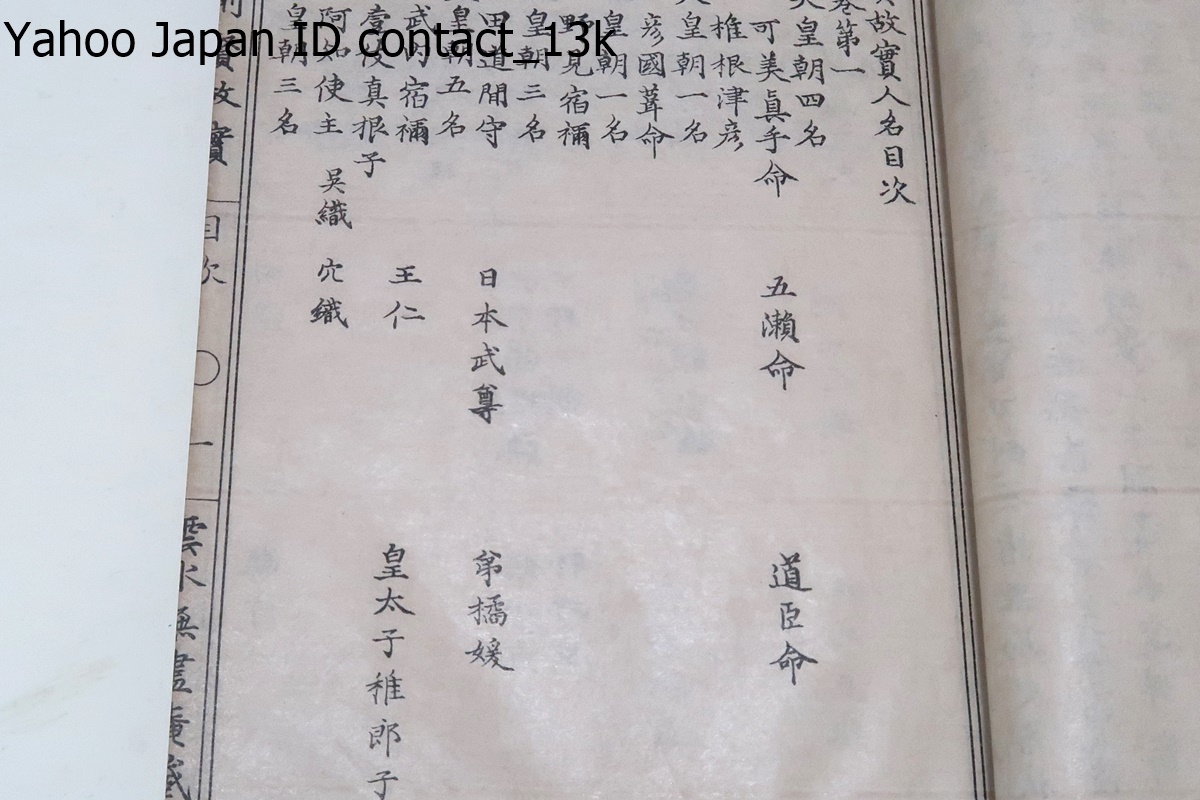 Yahoo Japan ID contact_13k
故實人名目次
卷第一
天皇朝四名
可美眞手命 五瀨命 道臣命
椎根津彦
天皇朝一名
彦國葺命
皇朝一名
野見宿禰
皇朝三名
田道間守 日本武尊 弟橘媛
皇朝五名
武内宿禰 王仁 皇太子稚郎子
真根子
阿知使主 吳織 穴織
皇朝三名
賢故實 目次 〇 一 雲水無盡庵藏